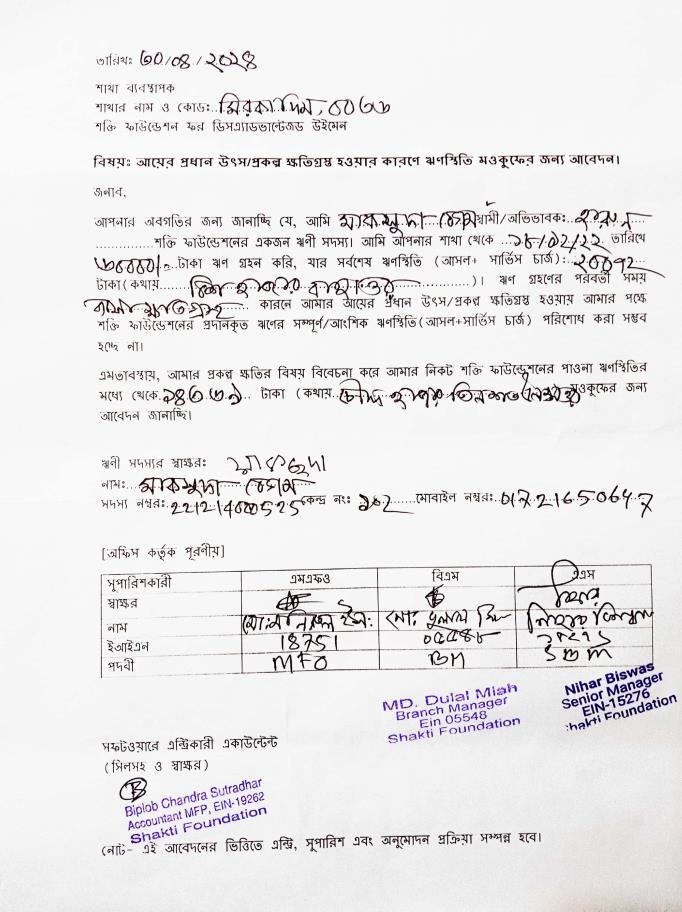 তারিখঃ ৩০/০৪/২০২৪
শাখা ব্যবস্থাপক
শাখার নাম ও কোডঃ..মিরকাদিম, ০০৩৩
শক্তি ফাউন্ডেশন ফর ডিসএ্যাডভান্টেজড উইমেন
বিষয়ঃ আয়ের প্রধান উৎস/প্রকল্প ক্ষতিগ্রস্থ হওয়ার কারণে ঋণস্থিতি মওকুফের জন্য আবেদন।
জনাব,
আপনার অবগতির জন্য জানাচ্ছি যে, আমি মাকসুদা বেগম স্বামী/অভিভাবকঃ..হারুন....
..............শক্তি ফাউন্ডেশনের একজন ঋণী সদস্য। আমি আপনার শাখা থেকে ..১৮/১২/২২. তারিখে
৩০০০০/=..টাকা ঋণ গ্রহন করি, যার সর্বশেষ ঋণস্থিতি (আসল+ সার্ভিস চার্জ)ঃ.২০০৭২....
টাকা(কথায়....বিশ হাজার বাহাত্তর..............)। ঋণ গ্রহণের পরবর্তী সময়
ক্ষতিগ্রস্থ...... কারনে আমার আয়ের প্রধান উৎস/প্রকল্প ক্ষতিগ্রস্থ হওয়ায় আমার পক্ষে
শক্তি ফাউন্ডেশনের প্রদানকৃত ঋণের সম্পূর্ণ/আংশিক ঋণস্থিতি(আসল+সার্ভিস চার্জ) পরিশোধ করা সম্ভব
হচ্ছে না।
এমতাবস্থায়, আমার প্রকল্প ক্ষতির বিষয় বিবেচনা করে আমার নিকট শক্তি ফাউন্ডেশনের পাওনা ঋণস্থিতির
মধ্যে থেকে..... টাকা (কথায়..চৌদ্দ হাজার তিনশত মওকুফের জন্য
আবেদন জানাচ্ছি।
ঋণী সদস্যর স্বাক্ষরঃ মাকছুদা
নামঃ...মাকসুদা বেগম
সদস্য নম্বরঃ22121400525 কেন্দ্র নংঃ ১০২ ......মোবাইল নম্বরঃ 01721650647
[অফিস কর্তৃক পূরণীয়]
সুপারিশকারী এমএফও বিএম এএস
স্বাক্ষর নিহার
নাম মোঃ মোঃ দুলাল মিয়া নিহার বিশ্বাস
ইআইএন 18751 ০৫৫৪৮
পদবী MFO BM SBM
MD. Dulal Miah
Branch Manager
Ein 05548
Shakti Foundation
Nihar Biswas
Senior Manager
EIN-15276
Shakti Foundation
সফটওয়ারে এন্ট্রিকারী একাউন্টেন্ট
(সিলসহ ও স্বাক্ষর)
B
Biplob Chandra Sutradhar
Accountant MFP, EIN-19262
Shakti Foundation
নোট- এই আবেদনের ভিত্তিতে এন্ট্রি, সুপারিশ এবং অনুমোদন প্রক্রিয়া সম্পন্ন হবে।